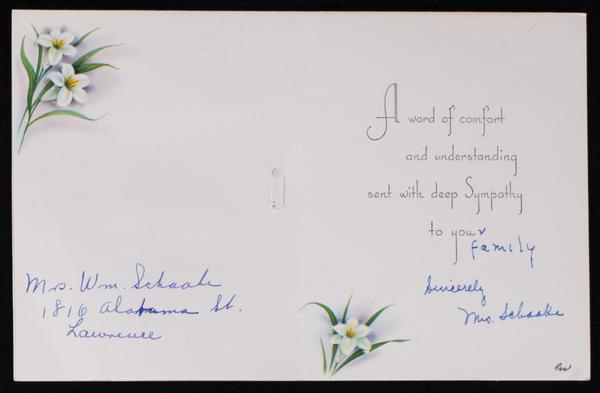 Mrs. Wm. Schaake
1816 Alabama St.
Lawrence
A word of comfort
and understanding
sent with deep Sympathy
to your
family
Sincerely
Mrs. Schaake